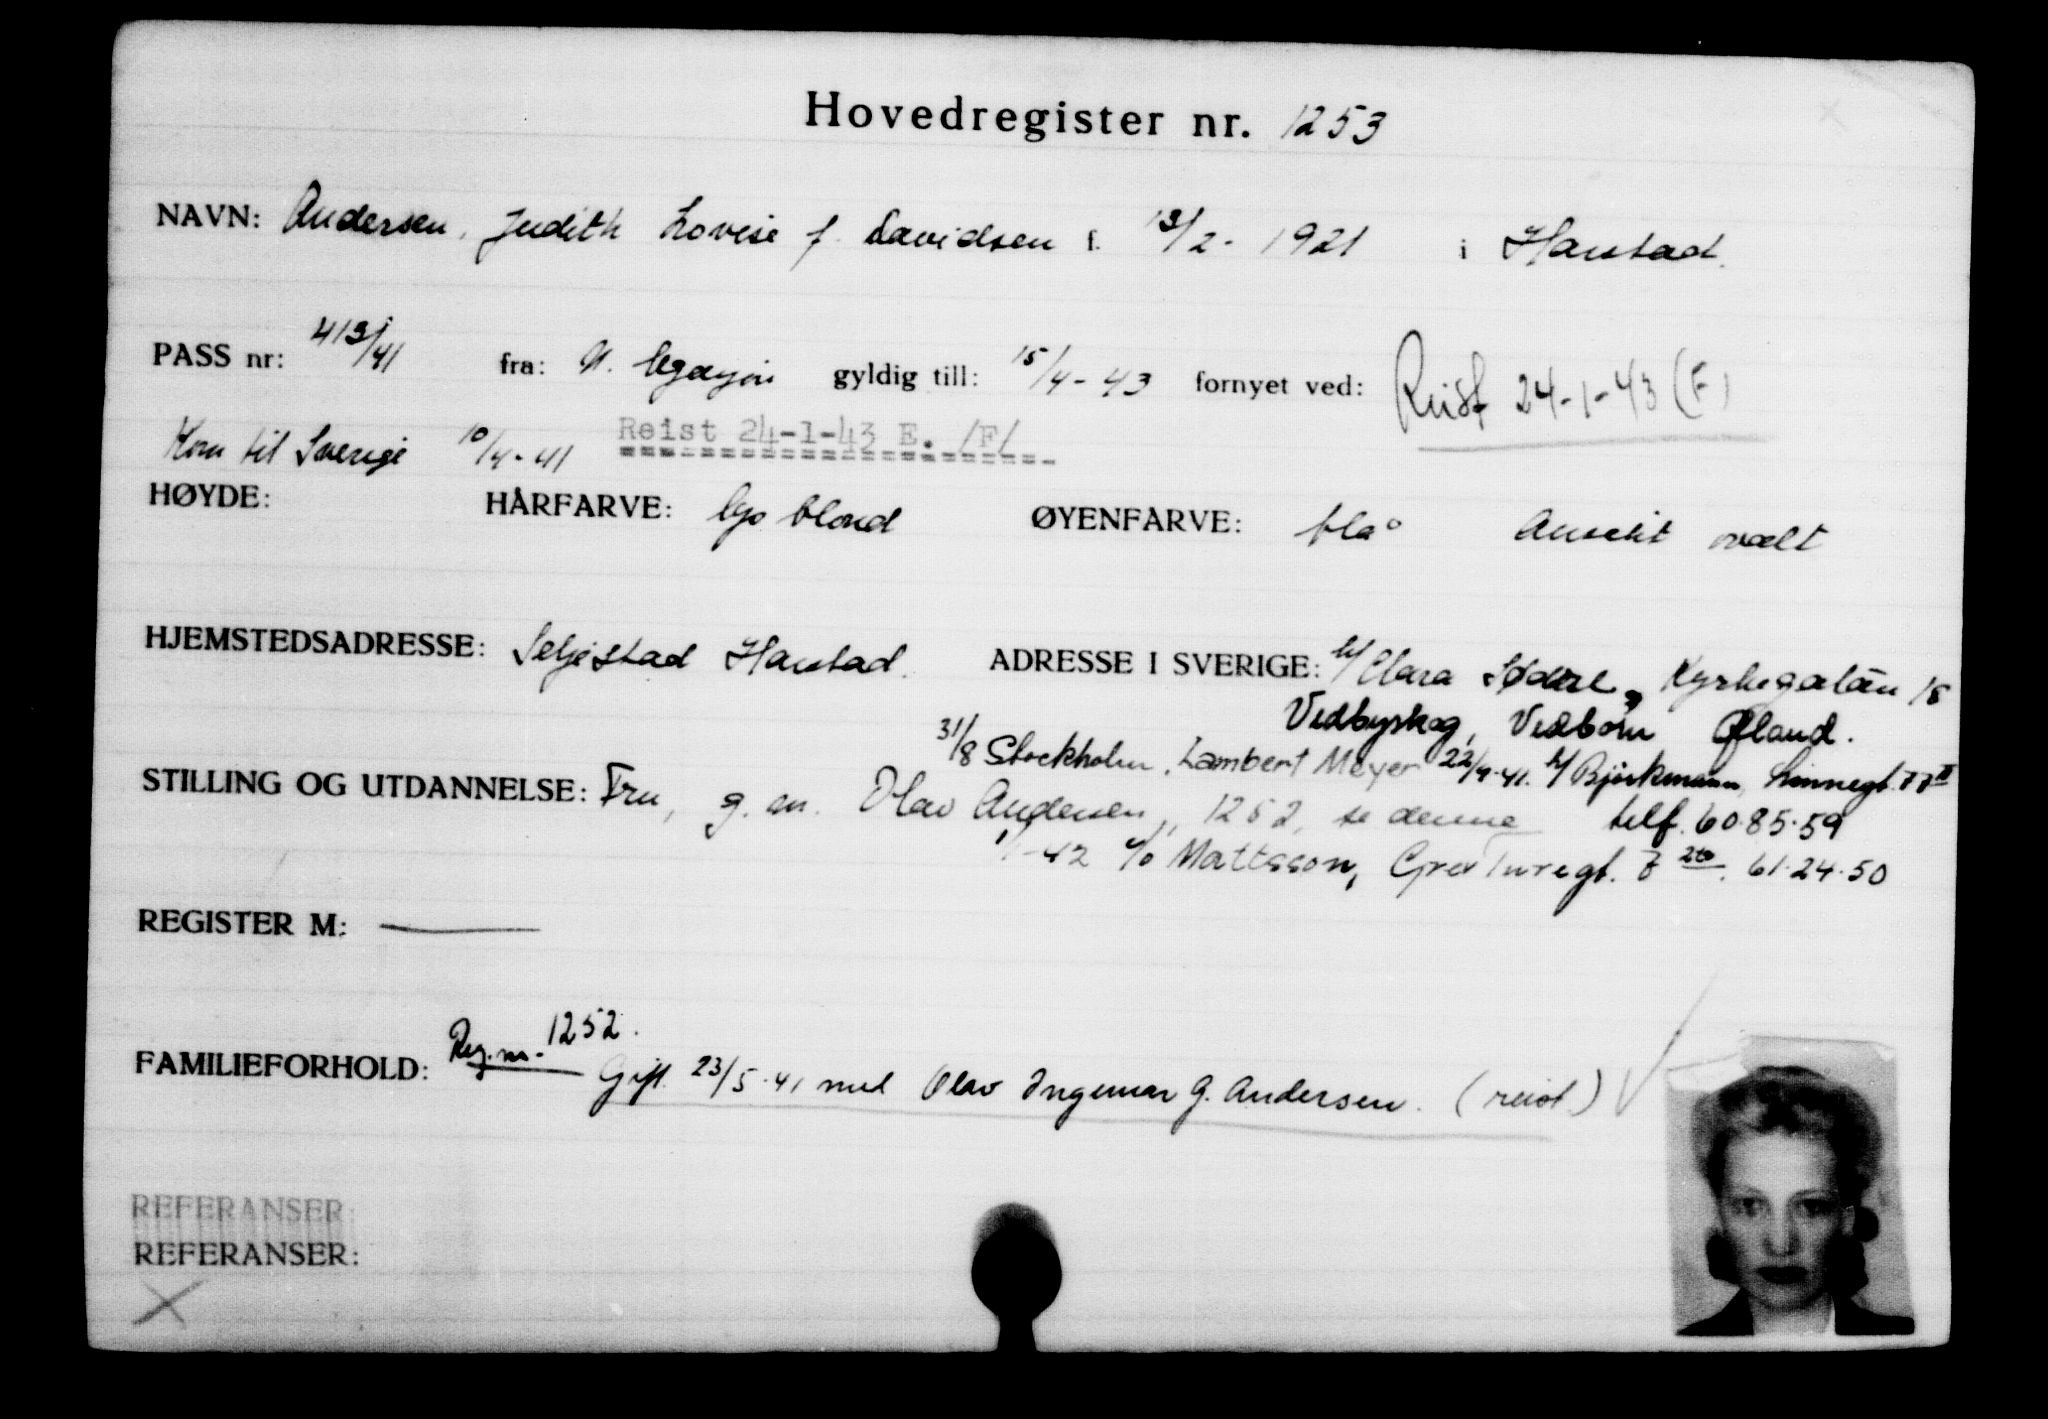 Hovedregister nr. 1253
NAVN: Andersen, Judith Lovise f. Davidsen f. 13/2-1921 i Harstad.
PASS nr: 413/41 fra: N. legasjon gyldig till: 15/4-43 fornyet ved: Reist 24-1-43 (F)
Kom til Sverige 10/4-41 Reist 24-1-43 E. /F/
HØYDE: HÅRFARVE: lys blond ØYENFARVE: blå Ansikt ovalt
HJEMSTEDSADRESSE: Seljestad Harstad. ADRESSE I SVERIGE: h/ Clara Södere, Kyrkogatan 18
Vedbyskog, Vedborm Øland.
31/8 Stockholm, Lambert Meyer 22/9-41. h/ Björkmann, Linnegt. 77 II
STILLING OG UTDANNELSE: Fru, g. m. Olav Andersen, 1252, se denne telf. 60.85.59
-42 c/o Mattsson, Grev Turegt. 7 2tr. 61.24.50
REGISTER M:
Reg. nr. 1252.
FAMILIEFORHOLD: Gift 23/5-41 med Olav Ingemar G. Andersen. (reist)
REFERANSER:
REFERANSER: